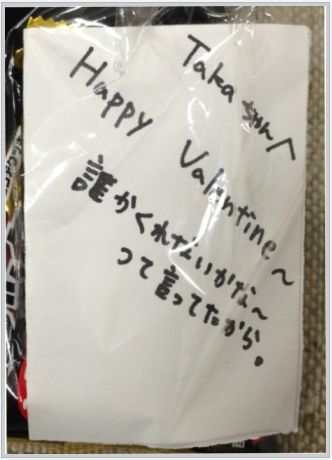 Takaちゃんへ
Happy Valentine〜
誰かくれないかな〜
って言ってたから。